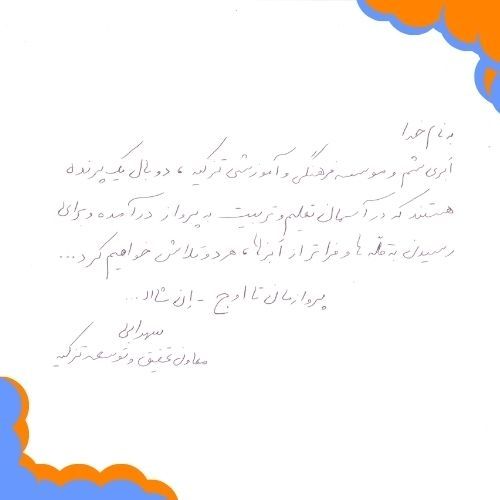 به نام خدا
ابری شم و موسسه فرهنگی و آموزشی تزکیه ، دو بال یک پرنده
هستند که در آسمان تعلیم و تربیت به پرواز درآمده و برای
رسیدن به قله ها و فراتر از ابرها ، هر دو تلاش خواهیم کرد ...
پروازمان تا اوج - ان شاالله ...
سهرابی
معاون تحقیق و توسعه تزکیه